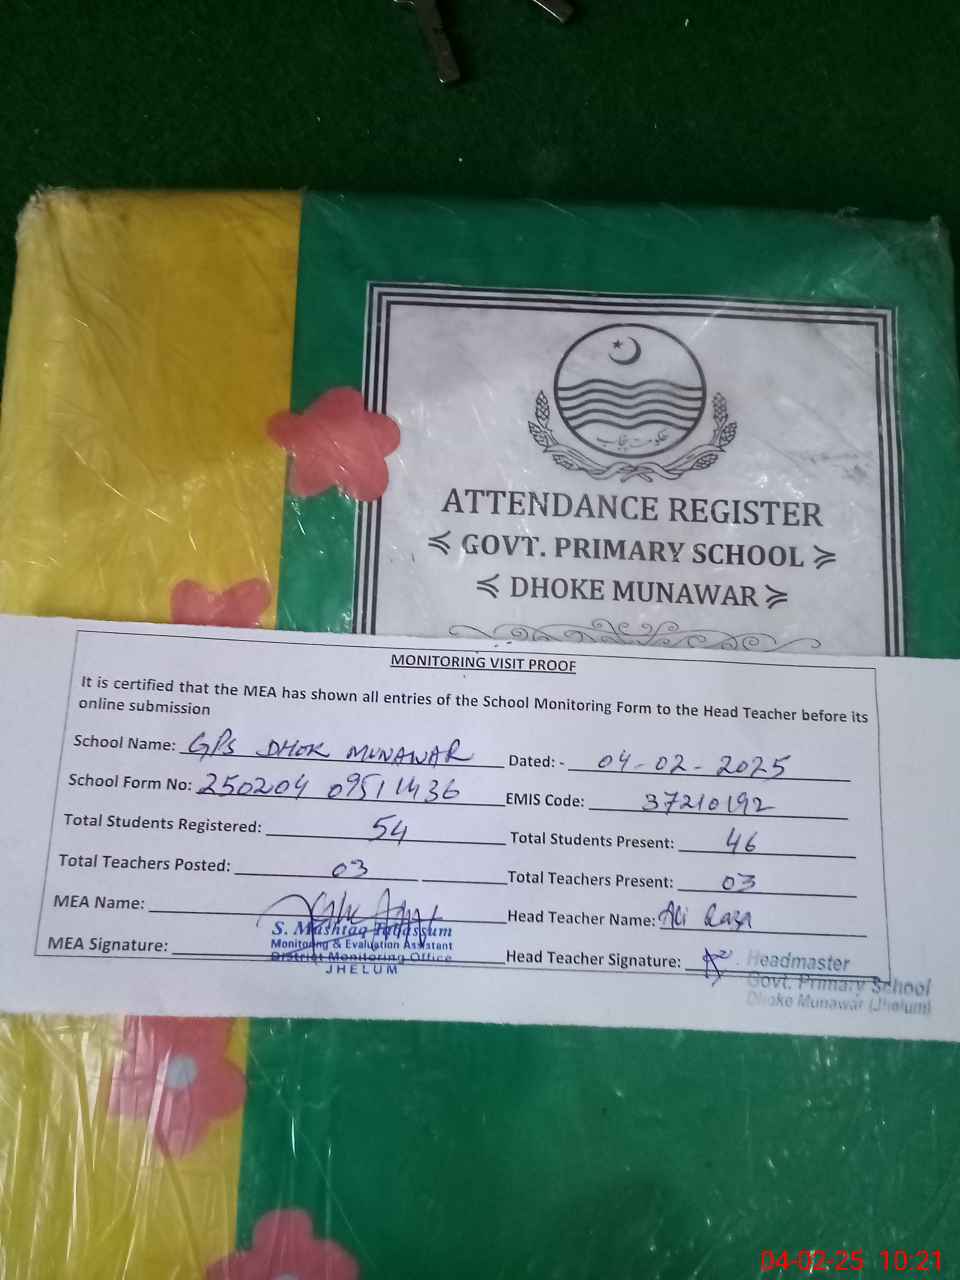 حکومت پنجاب
ATTENDANCE REGISTER
GOVT. PRIMARY SCHOOL
DHOKE MUNAWAR
MONITORING VISIT PROOF
It is certified that the MEA has shown all entries of the School Monitoring Form to the Head Teacher before its
online submission
School Name: GPS DHOK MUNAWAR Dated: - 04-02-2025
School Form No: 250204 09511436 EMIS Code: 37210192
Total Students Registered: 54 Total Students Present: 46
Total Teachers Posted: 03 Total Teachers Present: 03
MEA Name: Head Teacher Name: Ali Raza
S. Mashtaq Tabassum
Monitoring & Evaluation Assistant
MEA Signature: District Monitoring Office Head Teacher Signature: Headmaster
JHELUM Govt. Primary School
Dhoke Munawar (Jhelum)
04-02-25 10:21